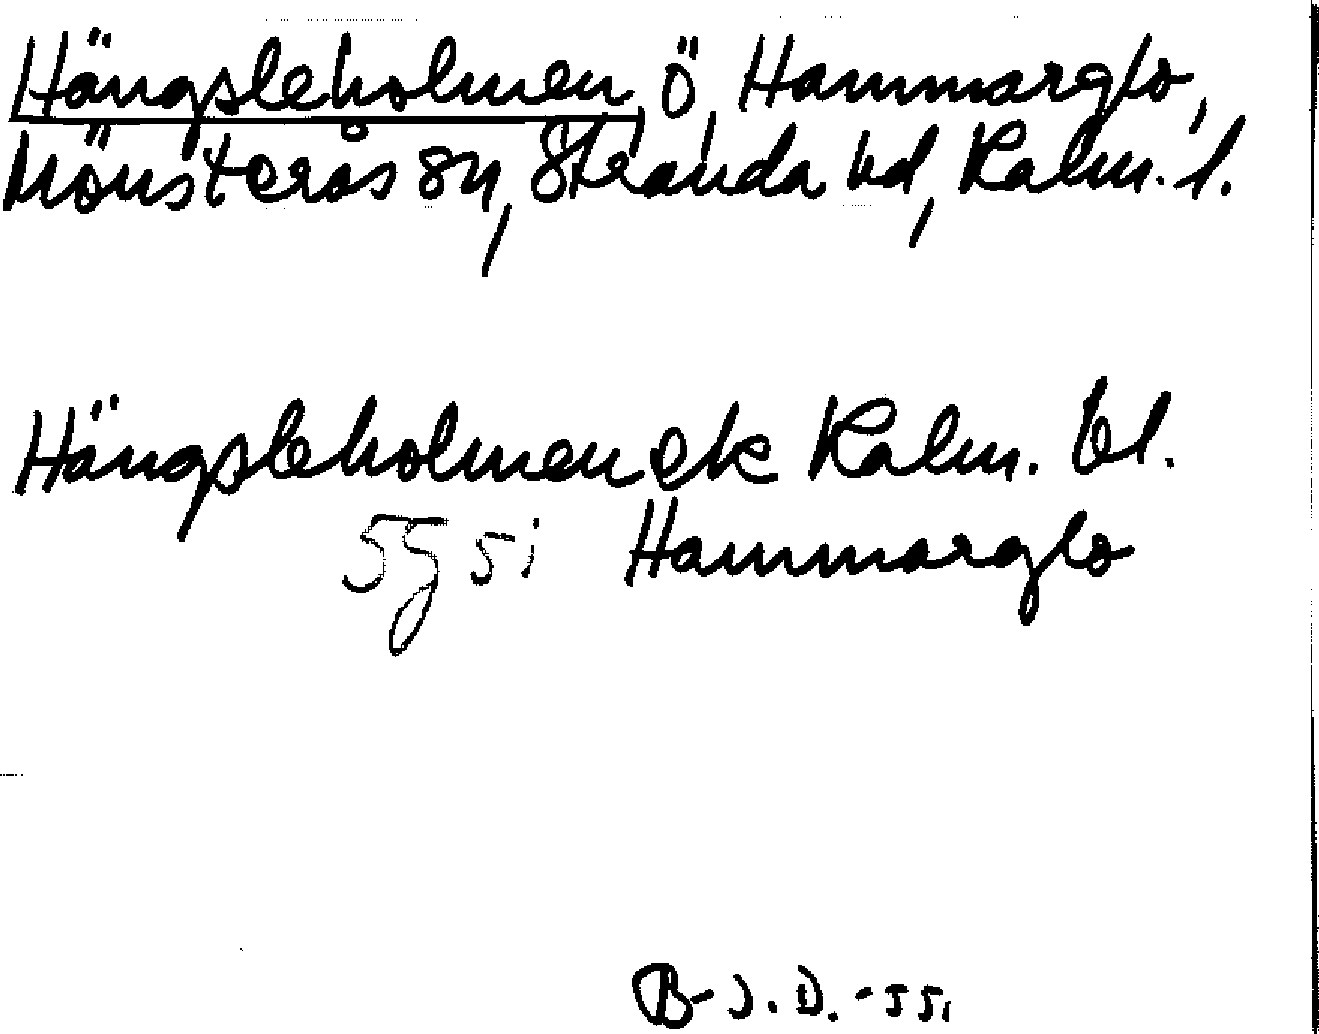 Hängsleholmen, ö, Hammarglo,
Mönsterås sn, Stranda hd, Kalm. l.
Hängsleholmen ek Kalm. bl.
5g 5i Hammarglo
B-J.D. -55